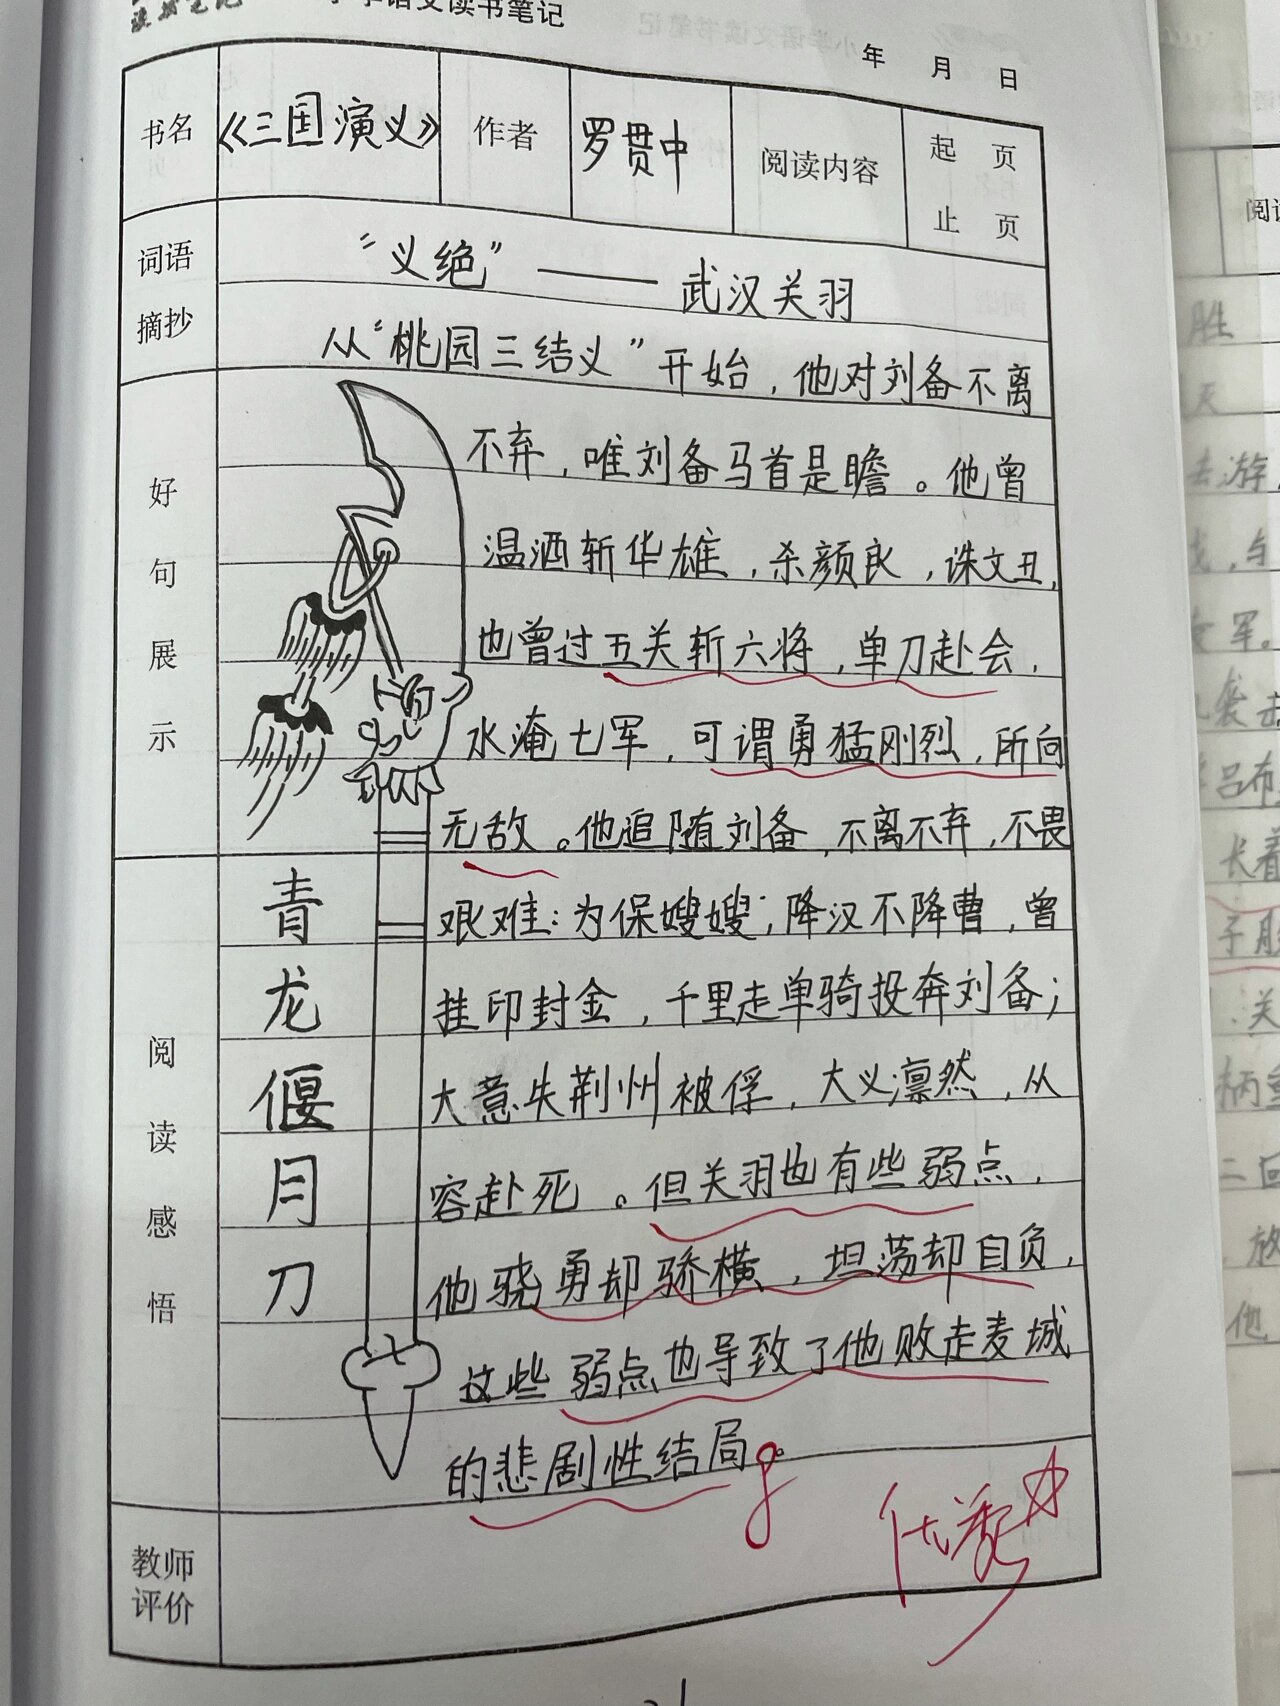 小学语文读书笔记
年 月 日
书名 《三国演义》 作者 罗贯中 阅读内容 起 页
止 页
词语
摘抄
“义绝”——武汉关羽
从“桃园三结义”开始，他对刘备不离
不弃，唯刘备马首是瞻。他曾
温酒斩华雄，杀颜良，诛文丑，
也曾过五关斩六将，单刀赴会，
水淹七军，可谓勇猛刚烈，所向
无敌。他追随刘备，不离不弃，不畏
艰难：为保嫂嫂，降汉不降曹，曾
挂印封金，千里走单骑投奔刘备；
大意失荆州被俘，大义凛然，从
容赴死。但关羽也有些弱点，
他骁勇却骄横，坦荡却自负，
这些弱点也导致了他败走麦城
的悲剧性结局。
好句展示
青龙偃月刀
阅读感悟
教师
评价
优秀
阅读
胜
去游
军。
袭击
吕布
长着
关
二回
放
他